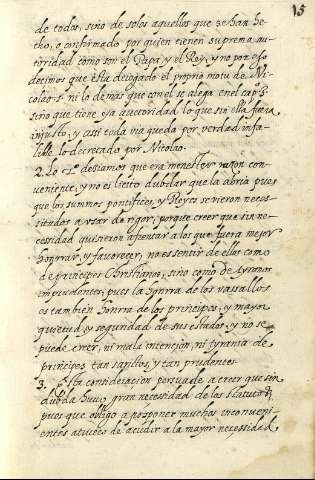 15
de todos, sino de solos aquellos que se han he-
cho, o confirmado por quien tienen suprema au-
toridad como son el Papa, y el Rey, y no por eso
decimos que esta derogado el proprio motu de Ni-
colao. 5. ni lo demas que con el se alega en el cap. 5.
sino que tiene ya auctoridad lo que sin ella fuera
injusto, y assi toda via queda por verdad infa-
lible lo decretado por Nicolao.
2. Lo 2º desiamos que era menester razon con-
veniente, y no es licito dubdar que la abria pues
que los summos pontifices, y Reyes se vieron neces-
sitados a usar de rigor, porque creer que sin ne-
cessidad quisieron afrentar a los que fuera mejor
honrrar, y favorecer, no es sentir de ellos como
de principes Christianos, sino como de tyranos
imprudentes, pues la honrra de los vassallos
es tambien honrra de los principes, y mayor
quietud, y seguridad de sus estados, y no se
puede creer, ni mala intencion, ni tyrania de
principes tan sanctos, y tan prudentes.
3. Esta consideracion persuade a creer que sin
dubda huvo gran necessidad de los statutos,
pues que obligo a posponer muchos inconveni-
entes a trueco de acudir a la mayor necessidad